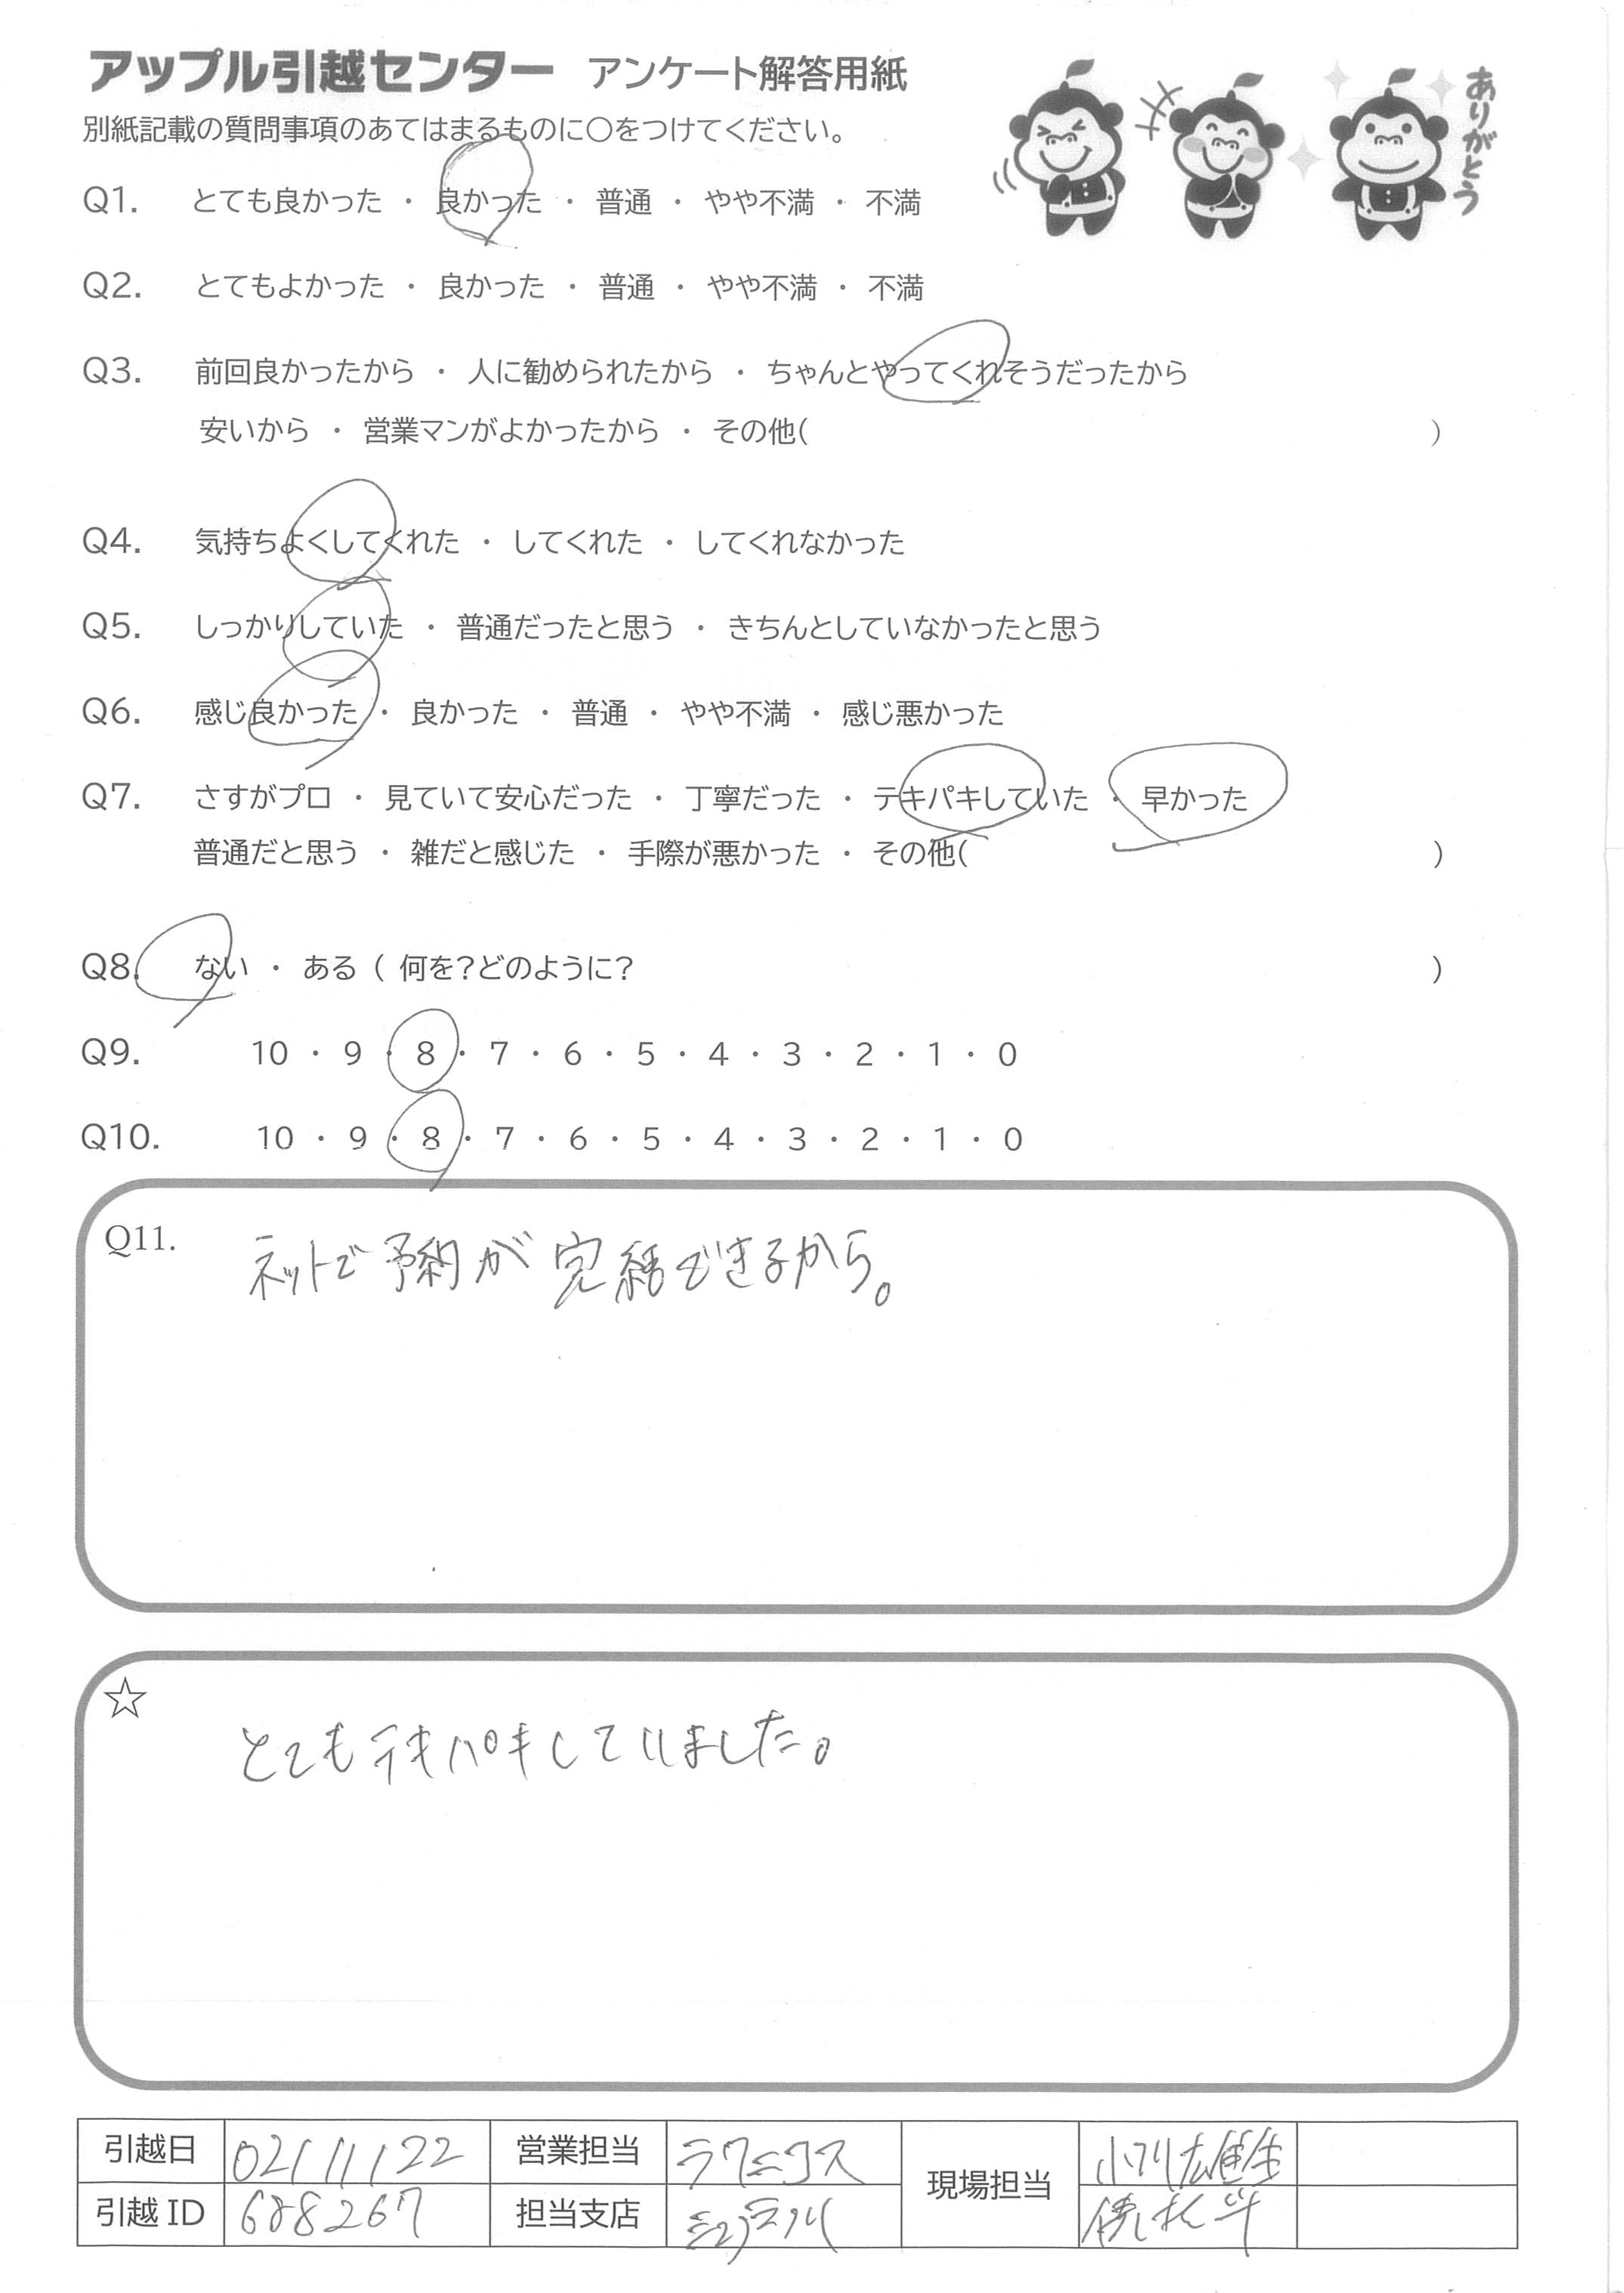 アップル引越センター アンケート解答用紙
別紙記載の質問事項のあてはまるものに○をつけてください。
ありがとう
Q1. とても良かった ・ 良かった ・ 普通 ・ やや不満 ・ 不満
Q2. とてもよかった ・ 良かった ・ 普通 ・ やや不満 ・ 不満
Q3. 前回良かったから ・ 人に勧められたから ・ ちゃんとやってくれそうだったから
安いから ・ 営業マンがよかったから ・ その他( )
Q4. 気持ちよくしてくれた ・ してくれた ・ してくれなかった
Q5. しっかりしていた ・ 普通だったと思う ・ きちんとしていなかったと思う
Q6. 感じ良かった ・ 良かった ・ 普通 ・ やや不満 ・ 感じ悪かった
Q7. さすがプロ ・ 見ていて安心だった ・ 丁寧だった ・ テキパキしていた ・ 早かった
普通だと思う ・ 雑だと感じた ・ 手際が悪かった ・ その他( )
Q8. ない ・ ある ( 何を?どのように? )
Q9. 10 ・ 9 ・ 8 ・ 7 ・ 6 ・ 5 ・ 4 ・ 3 ・ 2 ・ 1 ・ 0
Q10. 10 ・ 9 ・ 8 ・ 7 ・ 6 ・ 5 ・ 4 ・ 3 ・ 2 ・ 1 ・ 0
Q11. ネットで予約が完結できるから。
☆
とてもテキパキしていました。
引越日 02/11/22 営業担当 現場担当
引越 ID 688267 担当支店